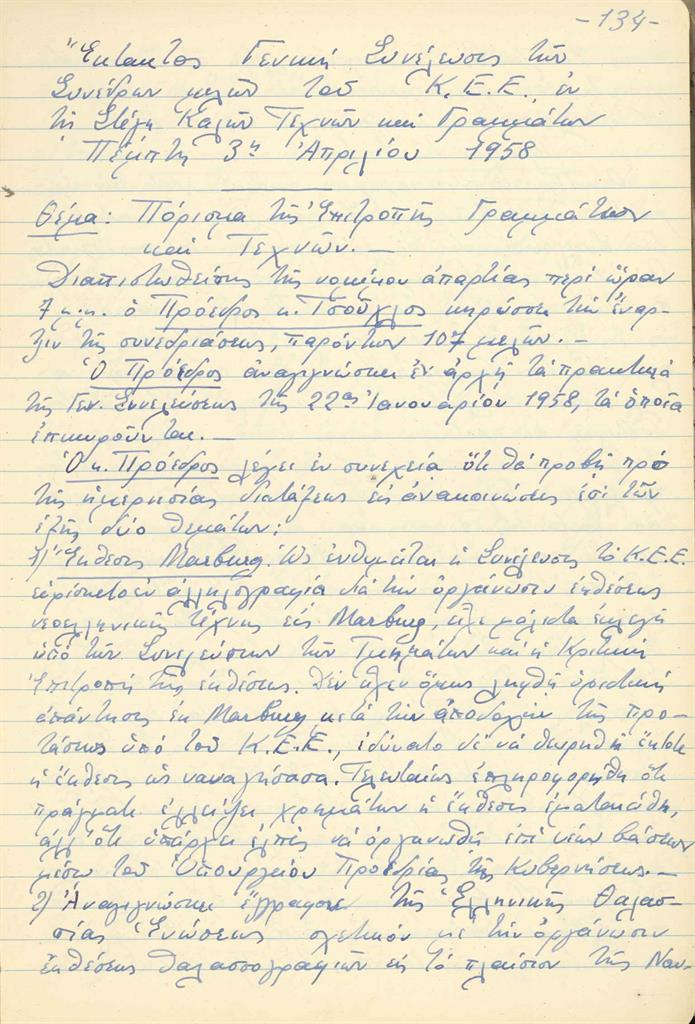 -134-
Ἔκτακτος Γενική Συνέλευσις τῶν
Συνέδρων μελῶν τοῦ Κ.Ε.Ε. ἐν
τῇ Στέγῃ Καλῶν Τεχνῶν καί Γραμμάτων
Πέμπτη 3η Ἀπριλίου 1958
Θέμα: Πόρισμα τῆς Ἐπιτροπῆς Γραμμάτων
καί Τεχνῶν. –
Διαπιστωθείσης τῆς νομίμου ἀπαρτίας περί ὥραν
7 μ.μ. ὁ Πρόεδρος κ. Τσοῦχλος κηρύσσει τήν ἔναρ-
ξιν τῆς συνεδριάσεως, παρόντων 107 μελῶν. –
Ὁ Πρόεδρος ἀναγιγνώσκει ἐν ἀρχῇ τά πρακτικά
τῆς Γεν. Συνελεύσεως τῆς 22ας Ἰανουαρίου 1958, τά ὁποῖα
ἐπικυροῦνται. –
Ὁ κ. Πρόεδρος λέγει ἐν συνεχείᾳ ὅτι θά προβῇ πρό
τῆς ἡμερησίας διατάξεως εἰς ἀνακοινώσεις ἐπί τῶν
ἑξῆς δύο θεμάτων:
1) Ἔκθεσις Marburg. Ὡς ἐνθυμεῖται ἡ Συνέλευσις τό Κ.Ε.Ε.
εὑρίσκετο ἐν ἀλληλογραφίᾳ διά τήν ὀργάνωσιν ἐκθέσεως
νεοελληνικῆς τέχνης εἰς Marburg, εἶχε μάλιστα ἐκλεγῆ
ὑπό τῶν Συνελεύσεων τῶν Τμημάτων καί ἡ Κριτική
Ἐπιτροπή τῆς ἐκθέσεως. Δέν εἶχεν ὅμως ληφθῆ ὁριστική
ἀπάντησις ἐκ Marburg μετά τήν ἀποδοχήν τῆς προ-
τάσεως ὑπό τοῦ Κ.Ε.Ε., ἠδύνατο δέ νά θεωρηθῇ ἔκτοτε
ἡ ἔκθεσις ὡς ναυαγήσασα. Τελευταίως ἐπληροφορήθη ὅτι
πράγματι ἐλλείψει χρημάτων ἡ ἔκθεσις ἐματαιώθη,
ἀλλ' ὅτι ὑπάρχει ἐλπίς νά ὀργανωθῇ ἐπί νέων βάσεων
μέσω τοῦ Ὑπουργείου Προεδρίας τῆς Κυβερνήσεως. –
2) Ἀναγιγνώσκει ἔγγραφον τῆς Ἑλληνικῆς Θαλασ-
σίας Ἑνώσεως σχετικόν μέ τήν ὀργάνωσιν
ἐκθέσεως θαλασσογραφιῶν εἰς τό πλαίσιον τῆς Ναυ-